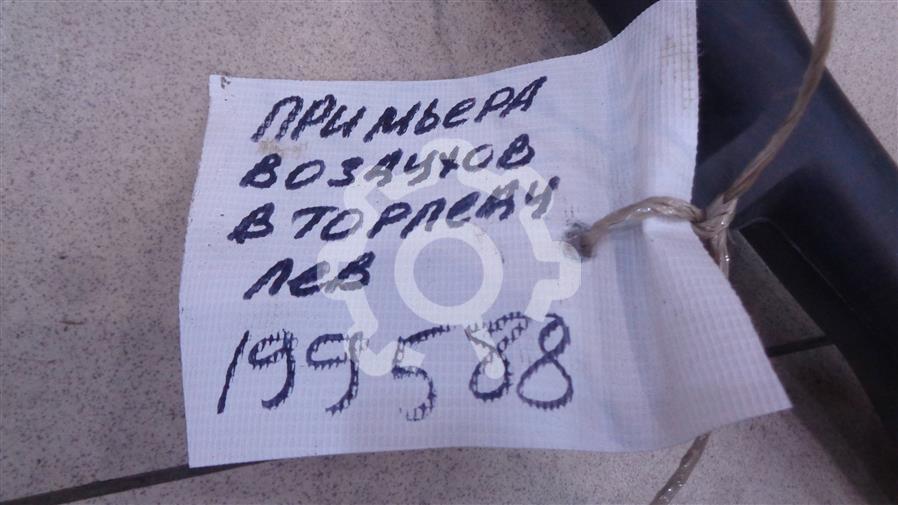 ПРИМЬЕРА
ВОЗДУХОВ
В ТОРПЕДУ
ЛЕВ
199588